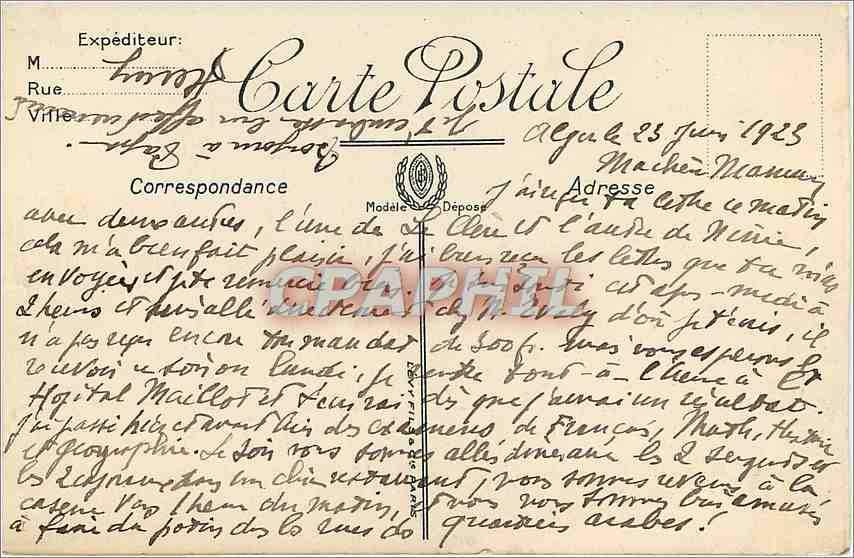 Expéditeur:
M
Rue
Ville
Carte Postale
Correspondance
Modèle Déposé
Adresse
LÉVY FILS & Cie PARIS
CPAPHIL
Alger le 23 Juin 1923
Ma chère Maman
J'ai reçu ta lettre ce matin
avec deux autres, l'une de Le Clerc et l'autre de Ninie,
cela m'a bien fait plaisir, j'ai bien reçu les lettres que tu m'as
envoyées et je te remercie bien. Je suis sorti cet après-midi à
2 heures et suis allé directement chez M. d'où je t'écris, il
n'a pas reçu encore ton mandat de 300 f. mais nous espérons le
recevoir ce soir ou lundi, je rentre tout-à-l'heure à l'
Hôpital Maillot et t'écrirai dès que j'aurai un résultat.
J'ai passé hier et avant hier des examens de Français, Math, Histoire
et géographie. Le soir nous sommes allés dîner avec les 2 sergents et
les 2 caporaux dans un chic restaurant, nous sommes revenus à la
caserne vers 1 heure du matin, et nous nous sommes bien amusés
à faire du potin dans les rues des quartiers arabes!
Bonjour à Papa.
Je t'embrasse bien affectueusement